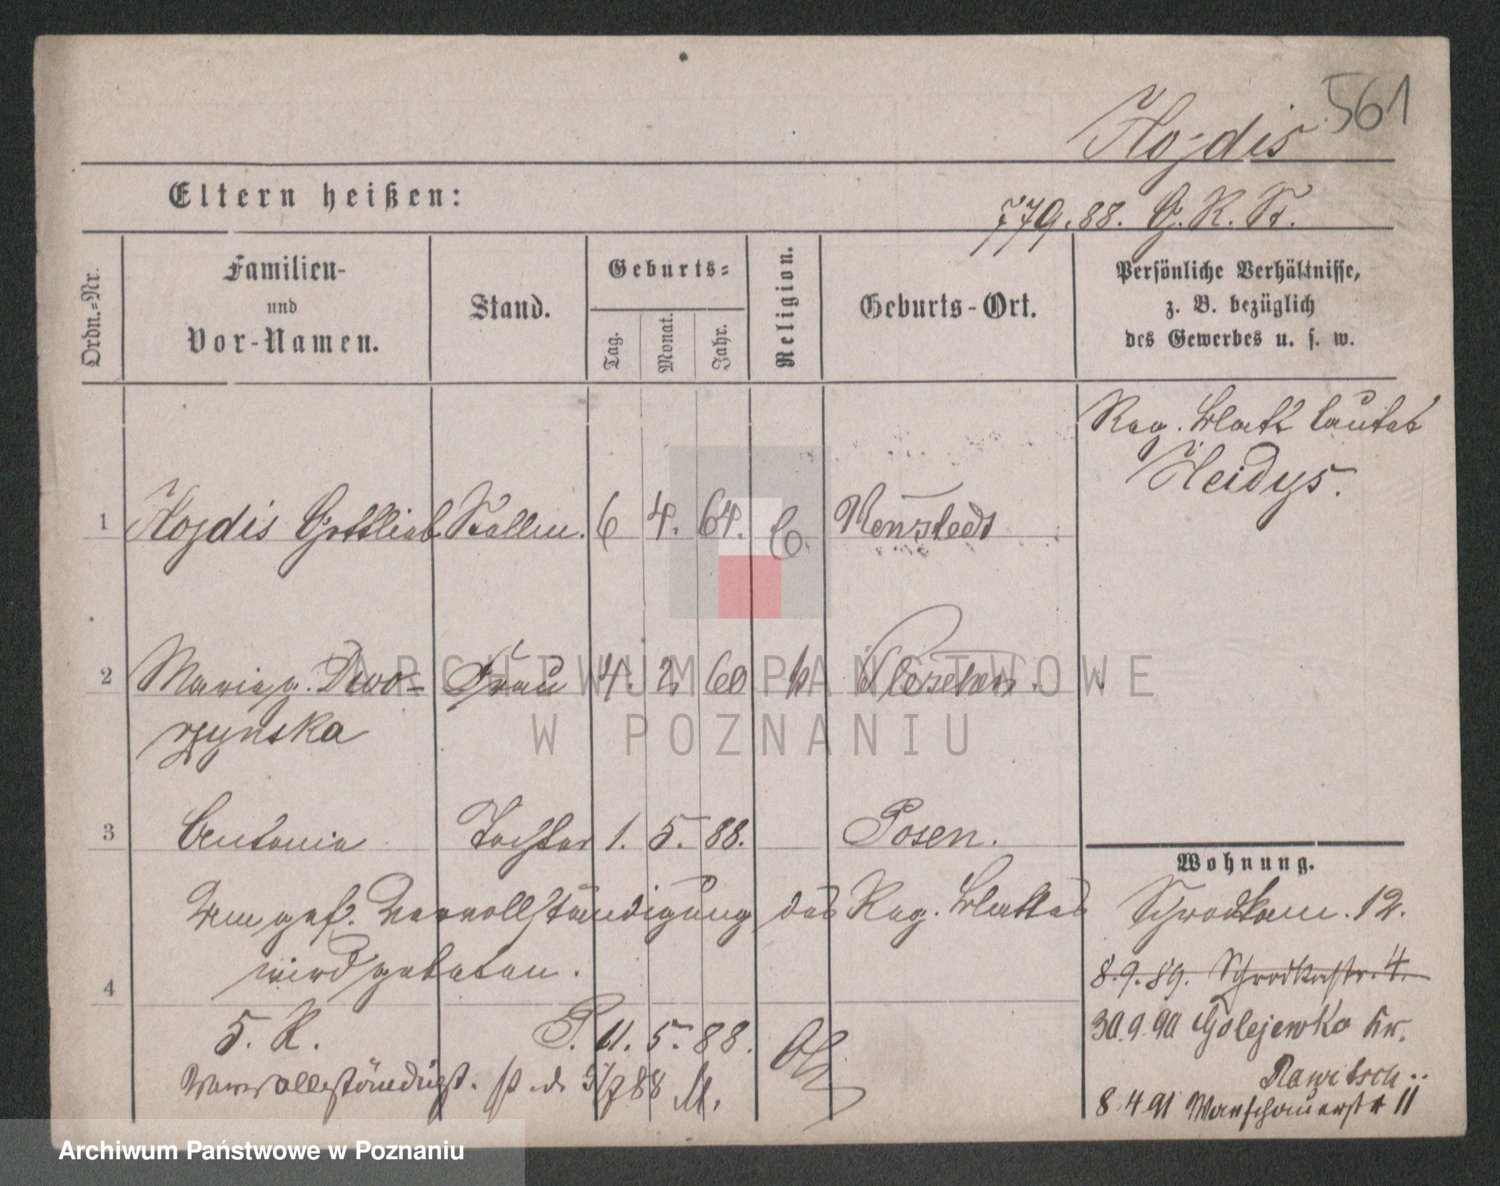 561
Hojdis
Eltern heißen:
779.88. G. K. St.
Ordn.-Nr.
Familien-
und
Vor-Namen.
Stand.
Geburts-
Tag.
Monat.
Jahr.
Religion.
Geburts-Ort.
Persönliche Verhältnisse,
z. B. bezüglich
des Gewerbes u. s. w.
Reg. Blatt lautet
Heidys.
1 Hojdis Gottlieb Stellm. 6 4. 64. C.
2 Maria g. Dwo- Frau 4. 2. 60 k Pleschen.
rzynska
3 Antonia Tochter 1. 5. 88. Posen.
Um gef. Vervollständigung des Reg. Blattes
wird gebeten.
4
5. R. P. 11. 5. 88.
Vervollständigt. P. d. 5/7 88 M.
Wohnung.
Schrodkam. 12.
8.9.89. Schrodkastr. 4.
30.9.90 Golejewko Kr.
Rawitsch
8.4.91 Warschauerstr 11
ARCHIWUM PAŃSTWOWE
W POZNANIU
Archiwum Państwowe w Poznaniu